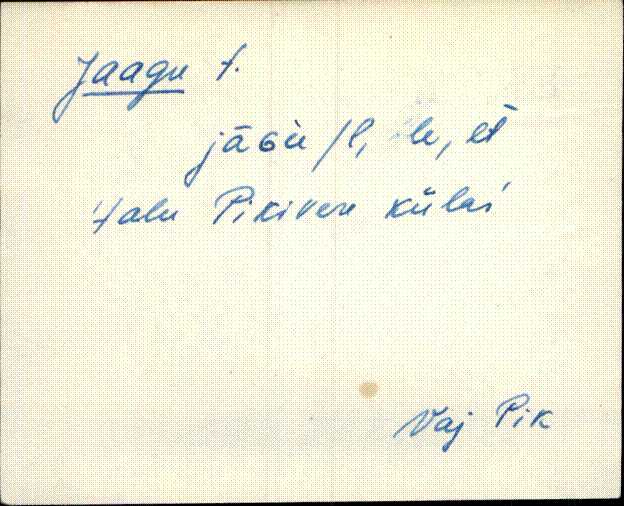 Jaagu t.
jāGu /l, le, lt
talu Pikivere külas
Vaj Pik